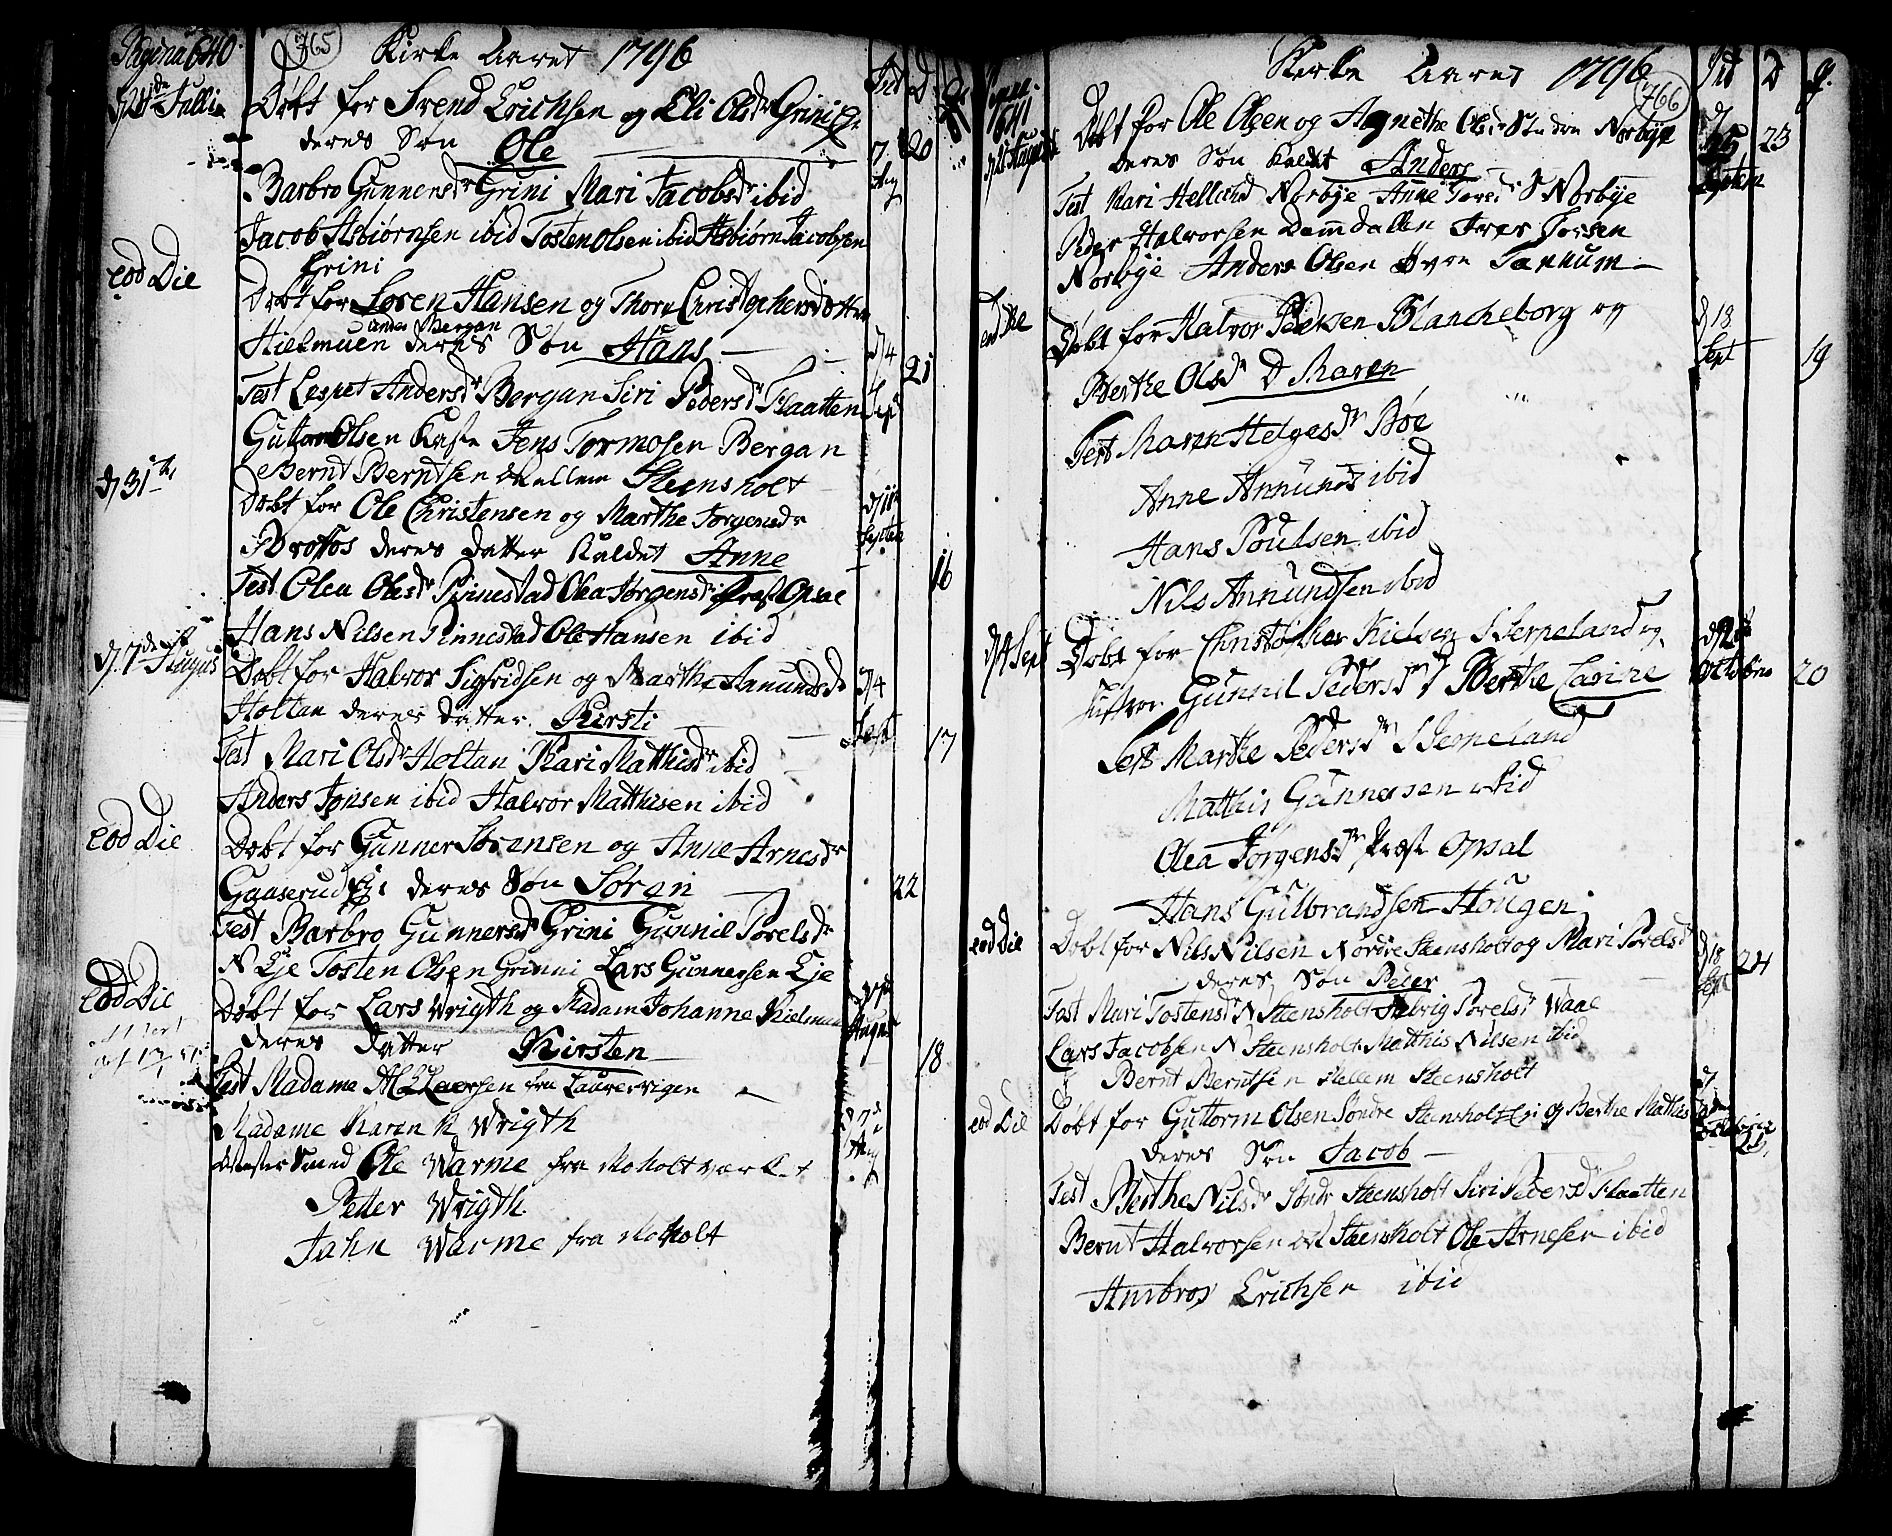 Pagina 640. 765 Kirke Aaret 1796
Juli Døbt for Svend Erichsen og Eli Olsdr Grini Eje
deres Søn Ole 20
Barbro Gunnersdr Grini Mari Jacobsdr ibid
Jacob Asbiørnsen ibid Tosten Olsen ibid Asbiørn Jacobsen
Grini
eod Die Døbt for Soren Hansen og Thore Christophersdotter
under Bergan
Hielmuen deres Søn Hans d 4 Sept 21
Test Lespet Andersdr Bergan Siri Pedersdr Flaatten
Guttorm Olsen Kaste Jens Tormosen Bergan
Bernt Berntsen Mellem Steensholt
d 31te Døbt for Ole Christensen og Marthe Jorgensdr
Broffos deres datter Kaldet Anne 16
Test Olea Olesdr Pinnestad Olea Jørgensdr Præst Opsal
Hans Nilsen Pinnestad Ole Hansen ibid
d. 7de August Døbt for Halvor Sigfridsen og Marthe Anundsdr
Holtan deres datter Kirsti d 4 Sept 17
Test Mari Olsdr Holtan Kari Matthisdr ibid
Anders Jonsen ibid Halvor Matthisen ibid
eod Die Døbt for Gunner Sørensen og Anne Arnesdr
Gaaserud Eje deres Søn Søren 22
Test Barbro Gunnersdr Grini Gunnil Porelsdr
N Eje Tosten Olsen Grinni Lars Gunnersen Eje
eod Die Døbt for Lars Wrigth og Madam Johanne Kielman
deres datter Kirsten 18
Test Madame Larsen fra Laurervigen
Madame Karen K Wrigth
Mester Smed Ole Warme fra Moholt værk
Petter Wrigth
Jahn Warme fra Moholt
Pagina 641 Kirke Aaret 1796 766
Døbt for Ole Olsen og Agnethe Olsdr Søndre Norbye
deres Søn Kaldet Anders 23
Test Mari Helland Norbye Anne S Norbye
Peder Halvorsen Damdallen Iver Torsen
Norbye Anders Olsen Øvre Sannum
eod Die Døbt for Halvor Pedersen Blancheborg og d 18 Sept
Berthe Olsdr D Maren 19
Test Maren Helgesdr Bøe
Anne Annunds ibid
Hans Poulsen ibid
Nils Annundsen ibid
d 4 Sept Døbt for Christopher Kielsen Skerneland og
Hustroe Gunnil Pedersdr Berthe Carine 20
Test Marthe Pedersdr Skerneland
Matthis Gunnersen ibid
Olea Jorgensdr Præst Opsal
Hans Gulbrandsen Hougen
eod Die Døbt for Nils Nilsen Nordre Steensholt og Mari Porelsdr d 18 Sept
deres Søn Peder 24
Test Mari Tostensdr N Steensholt Porelsdr Waae
Lars Jacobsen N Steensholt Matthis Nilsen ibid
Bernt Berntsen Mellem Steensholt
eod Die Døbt for Guttorm Olsen Søndre Steensholt Eje og Berthe Mathis
deres Søn Jacob 25
Test Berthe Nilsdr Søndr Steensholt Siri Pedersdr Flaatten
Bernt Halvorsen Steensholt Ole Arnesen ibid
Ambros Erichsen ibid